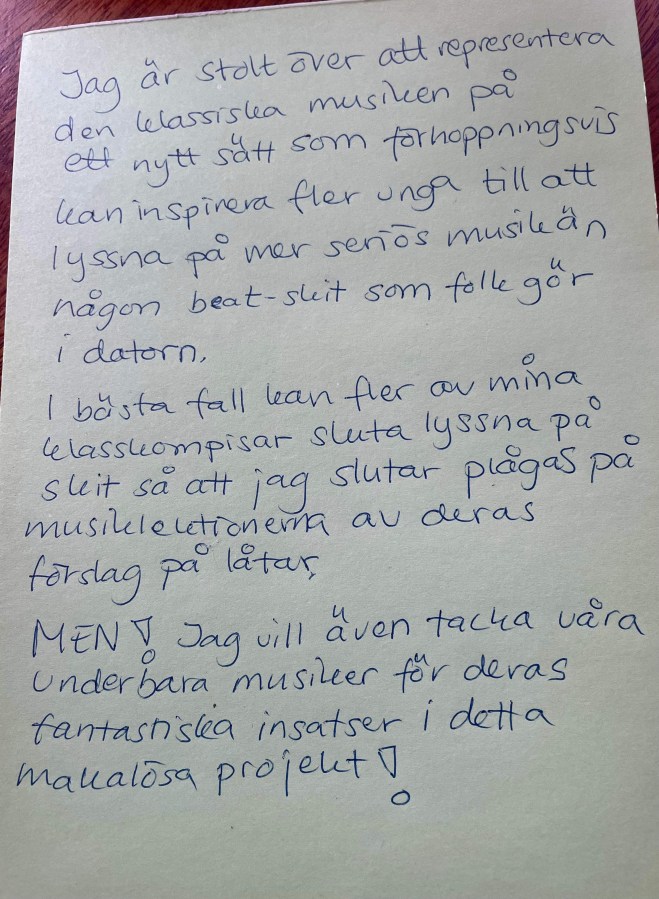 Jag är stolt över att representera
den klassiska musiken på
ett nytt sätt som förhoppningsvis
kan inspirera fler unga till att
lyssna på mer seriös musik än
någon beat-skit som folk gör
i datorn.
I bästa fall kan fler av mina
klasskompisar sluta lyssna på
skit så att jag slutar plågas på
musiklektionerna av deras
förslag på låtar.
MEN! Jag vill även tacka våra
underbara musiker för deras
fantastiska insatser i detta
makalösa projekt!